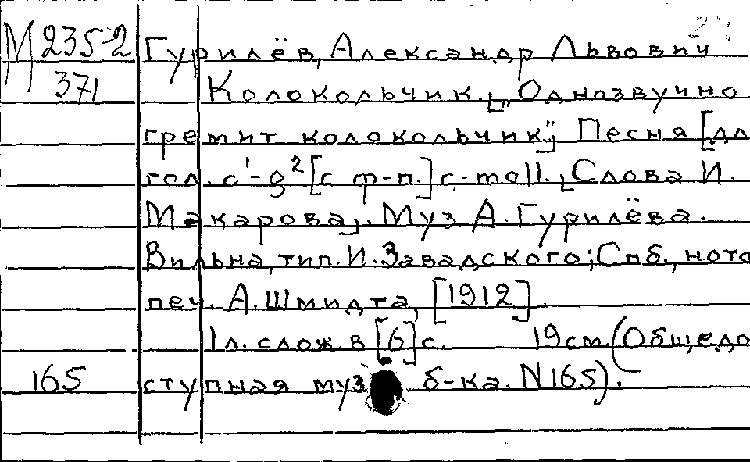 М 235-2 Гурилёв, Александр Львович
371 Колокольчик. „Однозвучно
гремит колокольчик“; Песня [дл
гол. c¹-g² [с ф-п.] c-moll. [Слова И.
Макарова]. Муз. А. Гурилёва.
Вильна, тип. И. Завадского; Спб., ното
печ. А. Шмидта, [1912]
1 л. слож в [6] с. 19 см. (Общедо
165 ступная муз. б-ка. N 165).